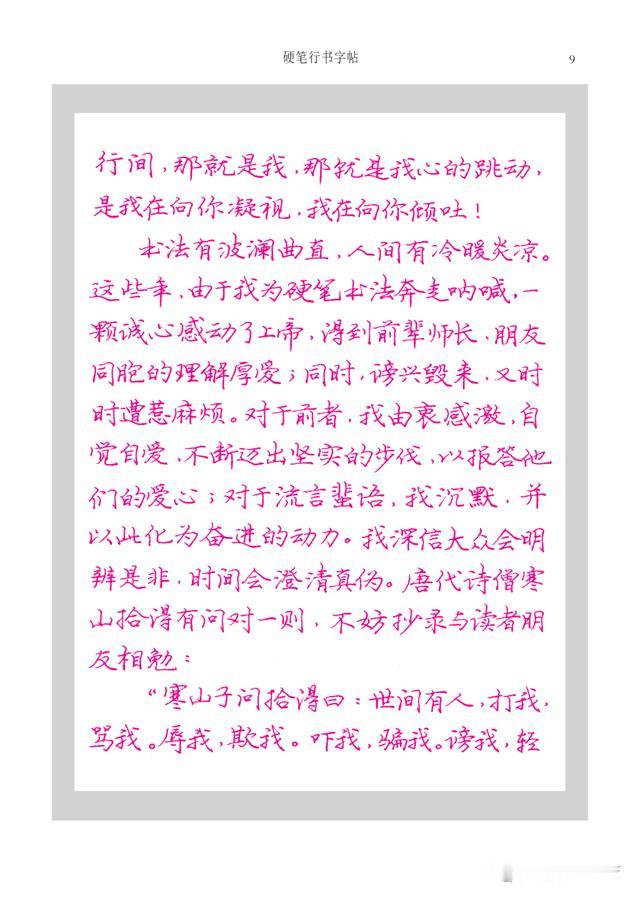 硬笔行书字帖 9
行间,那就是我,那就是我心的跳动,
是我在向你凝视,我在向你倾吐!
书法有波澜曲直,人间有冷暖炎凉。
这些年,由于我为硬笔书法奔走呐喊,一
颗诚心感动了上帝,得到前辈师长、朋友
同胞的理解厚爱;同时,谤兴毁来,又时
时遭惹麻烦。对于前者,我由衷感激,自
觉自爱,不断迈出坚实的步伐,以报答他
们的爱心;对于流言蜚语,我沉默,并
以此化为奋进的动力。我深信大众会明
辨是非,时间会澄清真伪。唐代诗僧寒
山拾得有问对一则,不妨抄录与读者朋
友相勉:
“寒山子问拾得曰:世间有人,打我,
骂我。辱我,欺我。吓我,骗我。谤我,轻